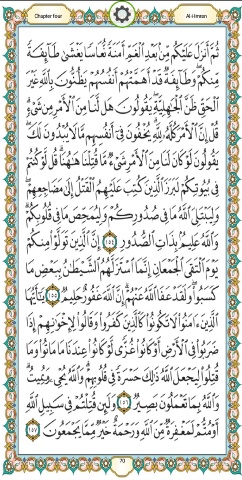 Chapter four
Al-Imran
ثُمَّ أَنزَلَ عَلَيْكُم مِّنۢ بَعْدِ ٱلْغَمِّ أَمَنَةً نُّعَاسًا يَغْشَىٰ طَآئِفَةً
مِّنكُمْ وَطَآئِفَةٌ قَدْ أَهَمَّتْهُمْ أَنفُسُهُمْ يَظُنُّونَ بِٱللَّهِ غَيْرَ
ٱلْحَقِّ ظَنَّ ٱلْجَٰهِلِيَّةِ يَقُولُونَ هَل لَّنَا مِنَ ٱلْأَمْرِ مِن شَىْءٍ
قُلْ إِنَّ ٱلْأَمْرَ كُلَّهُۥ لِلَّهِ يُخْفُونَ فِىٓ أَنفُسِهِم مَّا لَا يُبْدُونَ لَكَ
يَقُولُونَ لَوْ كَانَ لَنَا مِنَ ٱلْأَمْرِ شَىْءٌ مَّا قُتِلْنَا هَٰهُنَا قُل لَّوْ كُنتُمْ
فِى بُيُوتِكُمْ لَبَرَزَ ٱلَّذِينَ كُتِبَ عَلَيْهِمُ ٱلْقَتْلُ إِلَىٰ مَضَاجِعِهِمْ
وَلِيَبْتَلِىَ ٱللَّهُ مَا فِى صُدُورِكُمْ وَلِيُمَحِّصَ مَا فِى قُلُوبِكُمْ
وَٱللَّهُ عَلِيمٌۢ بِذَاتِ ٱلصُّدُورِ ١٥٤ إِنَّ ٱلَّذِينَ تَوَلَّوْا۟ مِنكُمْ
يَوْمَ ٱلْتَقَى ٱلْجَمْعَانِ إِنَّمَا ٱسْتَزَلَّهُمُ ٱلشَّيْطَٰنُ بِبَعْضِ مَا
كَسَبُوا۟ وَلَقَدْ عَفَا ٱللَّهُ عَنْهُمْ إِنَّ ٱللَّهَ غَفُورٌ حَلِيمٌ ١٥٥ يَٰٓأَيُّهَا
ٱلَّذِينَ ءَامَنُوا۟ لَا تَكُونُوا۟ كَٱلَّذِينَ كَفَرُوا۟ وَقَالُوا۟ لِإِخْوَٰنِهِمْ إِذَا
ضَرَبُوا۟ فِى ٱلْأَرْضِ أَوْ كَانُوا۟ غُزًّى لَّوْ كَانُوا۟ عِندَنَا مَا مَاتُوا۟ وَمَا
قُتِلُوا۟ لِيَجْعَلَ ٱللَّهُ ذَٰلِكَ حَسْرَةً فِى قُلُوبِهِمْ وَٱللَّهُ يُحْىِۦ وَيُمِيتُ
وَٱللَّهُ بِمَا تَعْمَلُونَ بَصِيرٌ ١٥٦ وَلَئِن قُتِلْتُمْ فِى سَبِيلِ ٱللَّهِ
أَوْ مُتُّمْ لَمَغْفِرَةٌ مِّنَ ٱللَّهِ وَرَحْمَةٌ خَيْرٌ مِّمَّا يَجْمَعُونَ ١٥٧
70